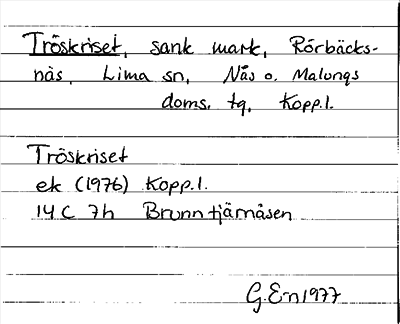 Tröskriset, sank mark, Rörbäcks-
näs, Lima sn, Nås o. Malungs
doms. tg, Kopp.l.
Tröskriset
ek (1976) Kopp.l.
14 C 7h Brunntjärnåsen
G.En 1977